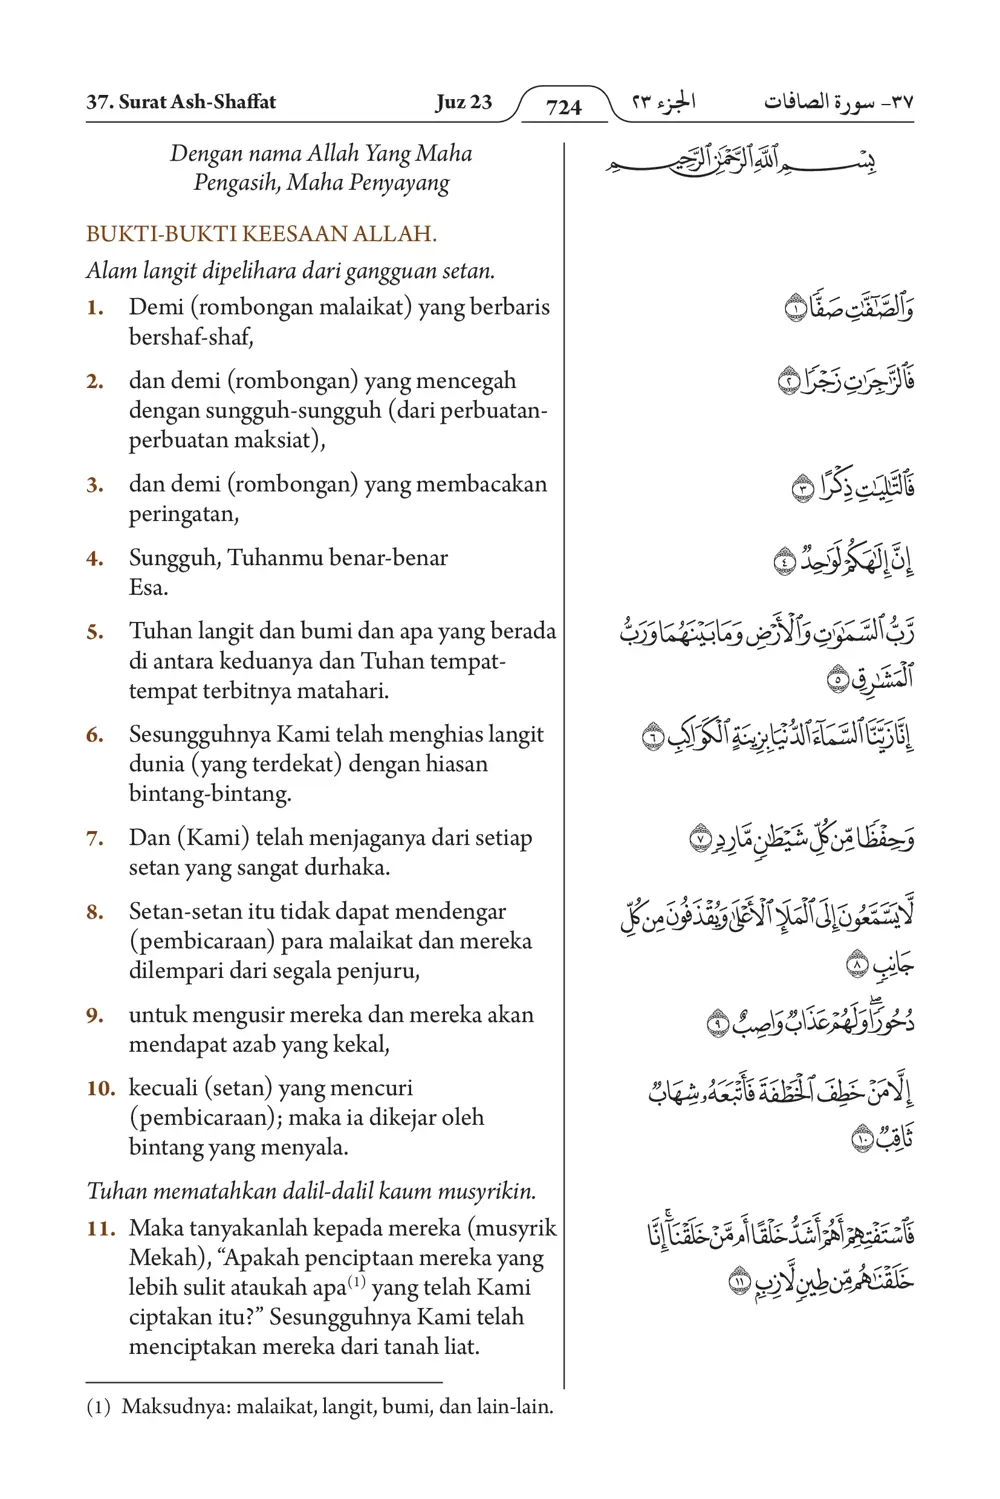 37. Surat Ash-Shaffat Juz 23 724 الجزء ٢٣ ٣٧- سورة الصافات
Dengan nama Allah Yang Maha
Pengasih, Maha Penyayang
بِسْمِ ٱللَّهِ ٱلرَّحْمَٰنِ ٱلرَّحِيمِ
BUKTI-BUKTI KEESAAN ALLAH.
Alam langit dipelihara dari gangguan setan.
1. Demi (rombongan malaikat) yang berbaris
bershaf-shaf,
وَٱلصَّٰٓفَّٰتِ صَفًّا ١
2. dan demi (rombongan) yang mencegah
dengan sungguh-sungguh (dari perbuatan-
perbuatan maksiat),
فَٱلزَّٰجِرَٰتِ زَجْرًا ٢
3. dan demi (rombongan) yang membacakan
peringatan,
فَٱلتَّٰلِيَٰتِ ذِكْرًا ٣
4. Sungguh, Tuhanmu benar-benar
Esa.
إِنَّ إِلَٰهَكُمْ لَوَٰحِدٌ ٤
5. Tuhan langit dan bumi dan apa yang berada
di antara keduanya dan Tuhan tempat-
tempat terbitnya matahari.
رَّبُّ ٱلسَّمَٰوَٰتِ وَٱلْأَرْضِ وَمَا بَيْنَهُمَا وَرَبُّ
ٱلْمَشَٰرِقِ ٥
6. Sesungguhnya Kami telah menghias langit
dunia (yang terdekat) dengan hiasan
bintang-bintang.
إِنَّا زَيَّنَّا ٱلسَّمَآءَ ٱلدُّنْيَا بِزِينَةٍ ٱلْكَوَاكِبِ ٦
7. Dan (Kami) telah menjaganya dari setiap
setan yang sangat durhaka.
وَحِفْظًا مِّن كُلِّ شَيْطَٰنٍ مَّارِدٍ ٧
8. Setan-setan itu tidak dapat mendengar
(pembicaraan) para malaikat dan mereka
dilempari dari segala penjuru,
لَّا يَسَّمَّعُونَ إِلَى ٱلْمَلَإِ ٱلْأَعْلَىٰ وَيُقْذَفُونَ مِن كُلِّ
جَانِبٍ ٨
9. untuk mengusir mereka dan mereka akan
mendapat azab yang kekal,
دُحُورًا ۖ وَلَهُمْ عَذَابٌ وَاصِبٌ ٩
10. kecuali (setan) yang mencuri
(pembicaraan); maka ia dikejar oleh
bintang yang menyala.
إِلَّا مَنْ خَطِفَ ٱلْخَطْفَةَ فَأَتْبَعَهُۥ شِهَابٌ
ثَاقِبٌ ١٠
Tuhan mematahkan dalil-dalil kaum musyrikin.
11. Maka tanyakanlah kepada mereka (musyrik
Mekah), “Apakah penciptaan mereka yang
lebih sulit ataukah apa(1) yang telah Kami
ciptakan itu?” Sesungguhnya Kami telah
menciptakan mereka dari tanah liat.
فَٱسْتَفْتِهِمْ أَهُمْ أَشَدُّ خَلْقًا أَم مَّنْ خَلَقْنَآ ۚ إِنَّا
خَلَقْنَٰهُم مِّن طِينٍ لَّازِبٍ ١١
(1) Maksudnya: malaikat, langit, bumi, dan lain-lain.